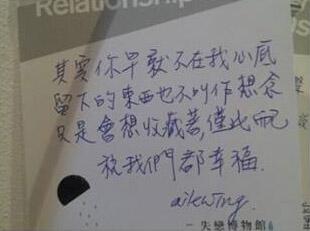 Relationship
其實你早就不在我心底
留下的東西也不叫作想念
只是會想收藏著,僅此而已
祝我們都幸福.
— 失戀博物館